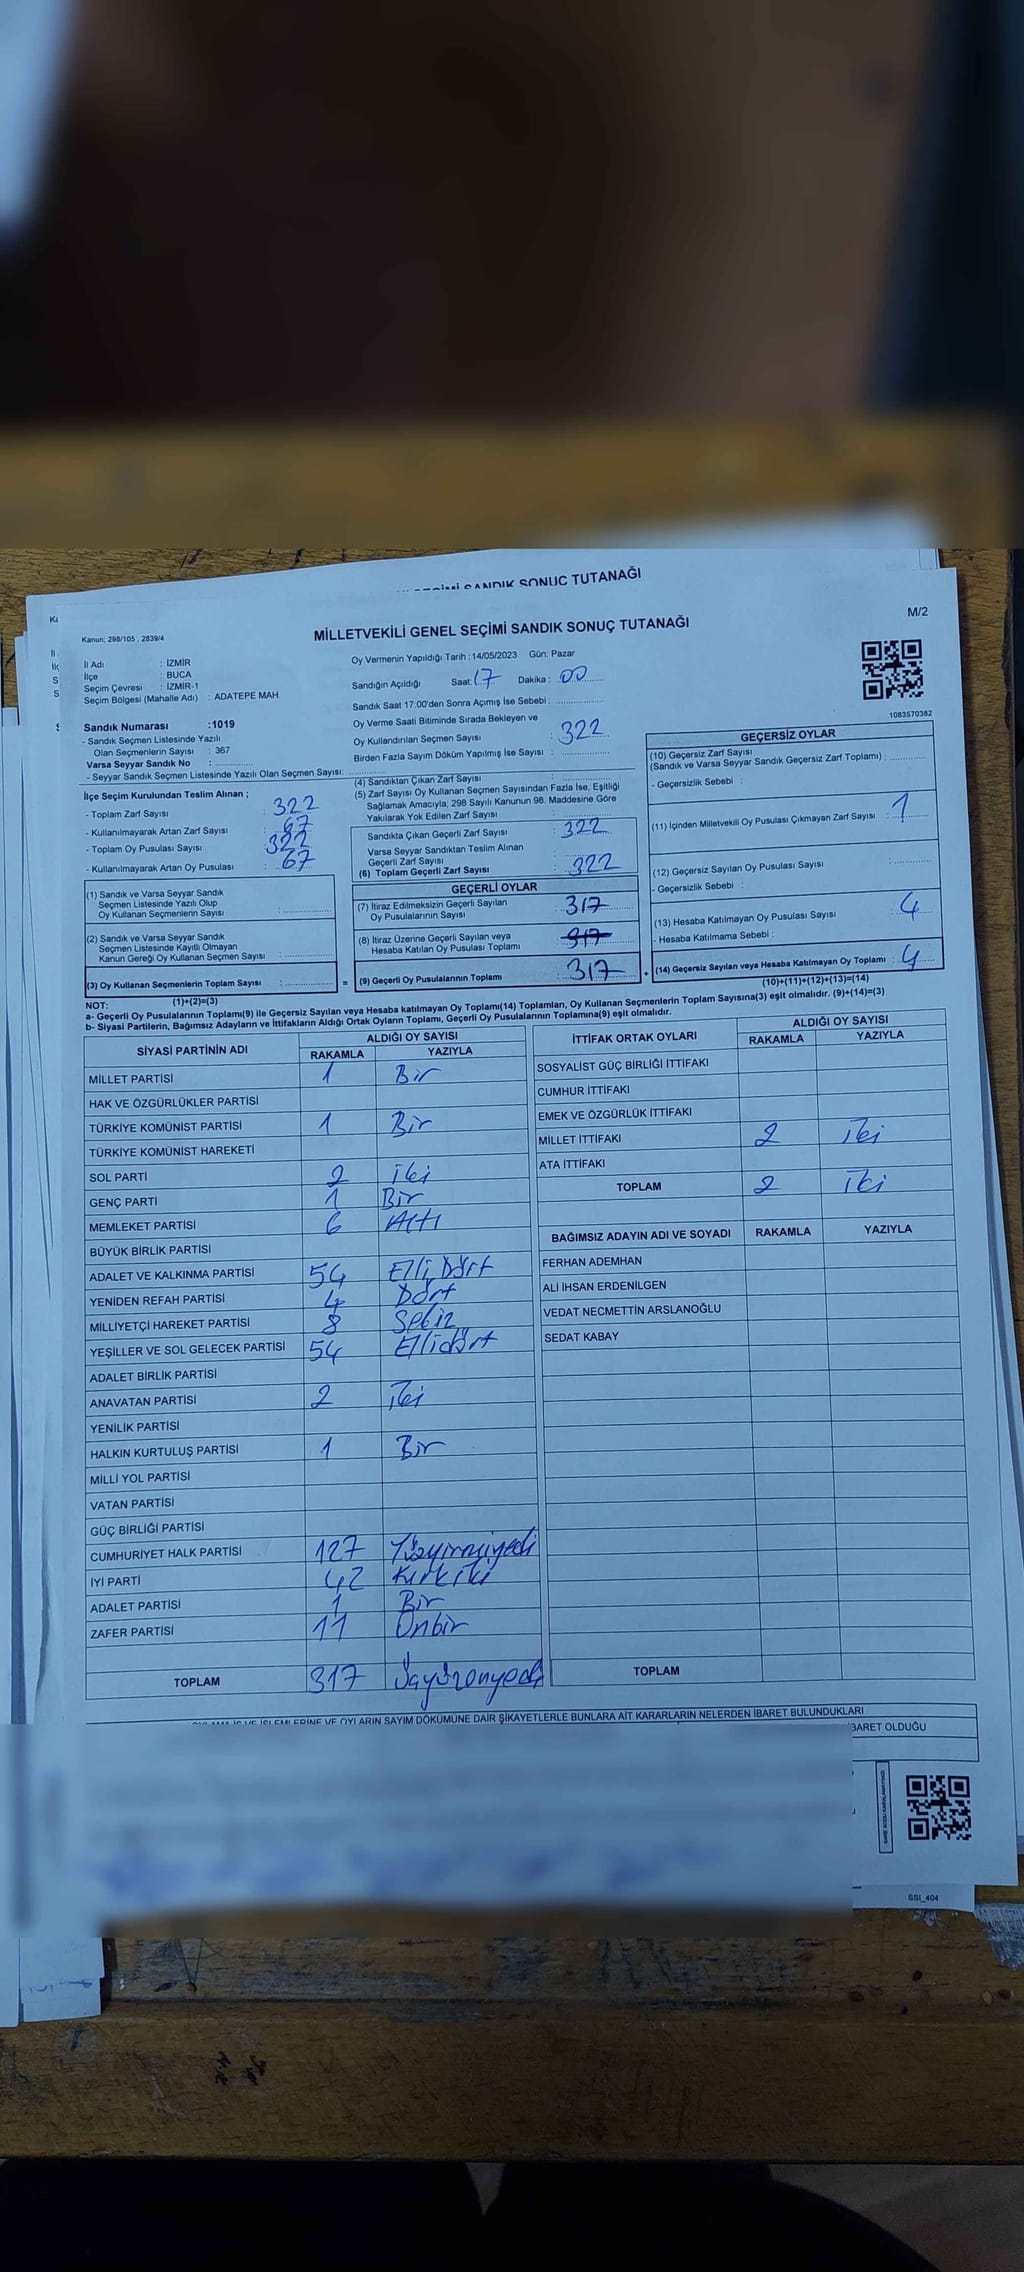 SEÇİMİ SANDIK SONUÇ TUTANAĞI
M/2
Kanun; 298/105 , 2839/4
MİLLETVEKİLİ GENEL SEÇİMİ SANDIK SONUÇ TUTANAĞI
İl Adı : İZMİR
İlçe : BUCA
Seçim Çevresi : İZMİR-1
Seçim Bölgesi (Mahalle Adı) : ADATEPE MAH.
Sandık Numarası :1019
- Sandık Seçmen Listesinde Yazılı
Olan Seçmenlerin Sayısı : 367
Varsa Seyyar Sandık No : ..............
- Seyyar Sandık Seçmen Listesinde Yazılı Olan Seçmen Sayısı: ..............
Oy Vermenin Yapıldığı Tarih :14/05/2023 Gün: Pazar
Sandığın Açıldığı Saat: 17 Dakika : 00
Sandık Saat 17:00'den Sonra Açımış İse Sebebi : ..............
Oy Verme Saati Bitiminde Sırada Bekleyen ve
Oy Kullandırılan Seçmen Sayısı : 322
Birden Fazla Sayım Döküm Yapılmış İse Sayısı : ..............
1083570382
İlçe Seçim Kurulundan Teslim Alınan ;
- Toplam Zarf Sayısı : 322
- Kullanılmayarak Artan Zarf Sayısı : 67
- Toplam Oy Pusulası Sayısı : 322
- Kullanılmayarak Artan Oy Pusulası : 67
(1) Sandık ve Varsa Seyyar Sandık
Seçmen Listesinde Yazılı Olup
Oy Kullanan Seçmenlerin Sayısı : ..............
(2) Sandık ve Varsa Seyyar Sandık
Seçmen Listesinde Kayıtlı Olmayan
Kanun Gereği Oy Kullanan Seçmen Sayısı : ..............
(3) Oy Kullanan Seçmenlerin Toplam Sayısı : .............. =
(1)+(2)=(3)
(4) Sandıktan Çıkan Zarf Sayısı : ..............
(5) Zarf Sayısı Oy Kullanan Seçmen Sayısından Fazla İse, Eşitliği
Sağlamak Amacıyla; 298 Sayılı Kanunun 98. Maddesine Göre
Yakılarak Yok Edilen Zarf Sayısı : ..............
Sandıkta Çıkan Geçerli Zarf Sayısı : 322
Varsa Seyyar Sandıktan Teslim Alınan
Geçerli Zarf Sayısı : ..............
(6) Toplam Geçerli Zarf Sayısı : 322
GEÇERLİ OYLAR
(7) İtiraz Edilmeksizin Geçerli Sayılan
Oy Pusulalarının Sayısı : 317
(8) İtiraz Üzerine Geçerli Sayılan veya
Hesaba Katılan Oy Pusulası Toplamı : 317
(9) Geçerli Oy Pusulalarının Toplamı : 317 +
GEÇERSİZ OYLAR
(10) Geçersiz Zarf Sayısı
(Sandık ve Varsa Seyyar Sandık Geçersiz Zarf Toplamı) : ..............
- Geçersizlik Sebebi :
(11) İçinden Milletvekili Oy Pusulası Çıkmayan Zarf Sayısı : 1
(12) Geçersiz Sayılan Oy Pusulası Sayısı : ..............
- Geçersizlik Sebebi :
(13) Hesaba Katılmayan Oy Pusulası Sayısı : 4
- Hesaba Katılmama Sebebi :
(14) Geçersiz Sayılan veya Hesaba Katılmayan Oy Toplamı : 4
(10)+(11)+(12)+(13)=(14)
NOT:
a- Geçerli Oy Pusulaları Toplamı(9) ile Geçersiz Sayılan veya Hesaba katılmayan Oy Toplamı(14) Toplamları, Oy Kullanan Seçmenlerin Toplam Sayısına(3) eşit olmalıdır. (9)+(14)=(3)
b- Siyasi Partilerin, Bağımsız Adayların ve İttifakların Aldığı Ortak Oyların Toplamı, Geçerli Oy Pusulalarının Toplamına(9) eşit olmalıdır.
SİYASİ PARTİNİN ADI ALDIĞI OY SAYISI
RAKAMLA YAZIYLA
MİLLET PARTİSİ 1 Bir
HAK VE ÖZGÜRLÜKLER PARTİSİ
TÜRKİYE KOMÜNİST PARTİSİ 1 Bir
TÜRKİYE KOMÜNİST HAREKETİ
SOL PARTİ 2 iki
GENÇ PARTİ 1 Bir
MEMLEKET PARTİSİ 6 Altı
BÜYÜK BİRLİK PARTİSİ
ADALET VE KALKINMA PARTİSİ 54 Elli Dört
YENİDEN REFAH PARTİSİ 4 Dört
MİLLİYETÇİ HAREKET PARTİSİ 8 Sekiz
YEŞİLLER VE SOL GELECEK PARTİSİ 54 Ellidört
ADALET BİRLİK PARTİSİ
ANAVATAN PARTİSİ 2 iki
YENİLİK PARTİSİ
HALKIN KURTULUŞ PARTİSİ 1 Bir
MİLLİ YOL PARTİSİ
VATAN PARTİSİ
GÜÇ BİRLİĞİ PARTİSİ
CUMHURİYET HALK PARTİSİ 127 Yüzyirmiyedi
İYİ PARTİ 42 Kırkiki
ADALET PARTİSİ 1 Bir
ZAFER PARTİSİ 11 Onbir
TOPLAM 317 Üçyüzonyedi
İTTİFAK ORTAK OYLARI ALDIĞI OY SAYISI
RAKAMLA YAZIYLA
SOSYALİST GÜÇ BİRLİĞİ İTTİFAKI
CUMHUR İTTİFAKI
EMEK VE ÖZGÜRLÜK İTTİFAKI
MİLLET İTTİFAKI 2 iki
ATA İTTİFAKI
TOPLAM 2 iki
BAĞIMSIZ ADAYIN ADI VE SOYADI RAKAMLA YAZIYLA
FERHAN ADEMHAN
ALİ İHSAN ERDENİLGEN
VEDAT NECMETTİN ARSLANOĞLU
SEDAT KABAY
TOPLAM
OYLAMA İŞ VE İŞLEMLERİNE VE OYLARIN SAYIM DÖKÜMÜNE DAİR ŞİKAYETLERLE BUNLARA AİT KARARLARIN NELERDEN İBARET BULUNDUKLARI
İBARET OLDUĞU
KARE KODU KARALAMAYINIZ!
SSI_404